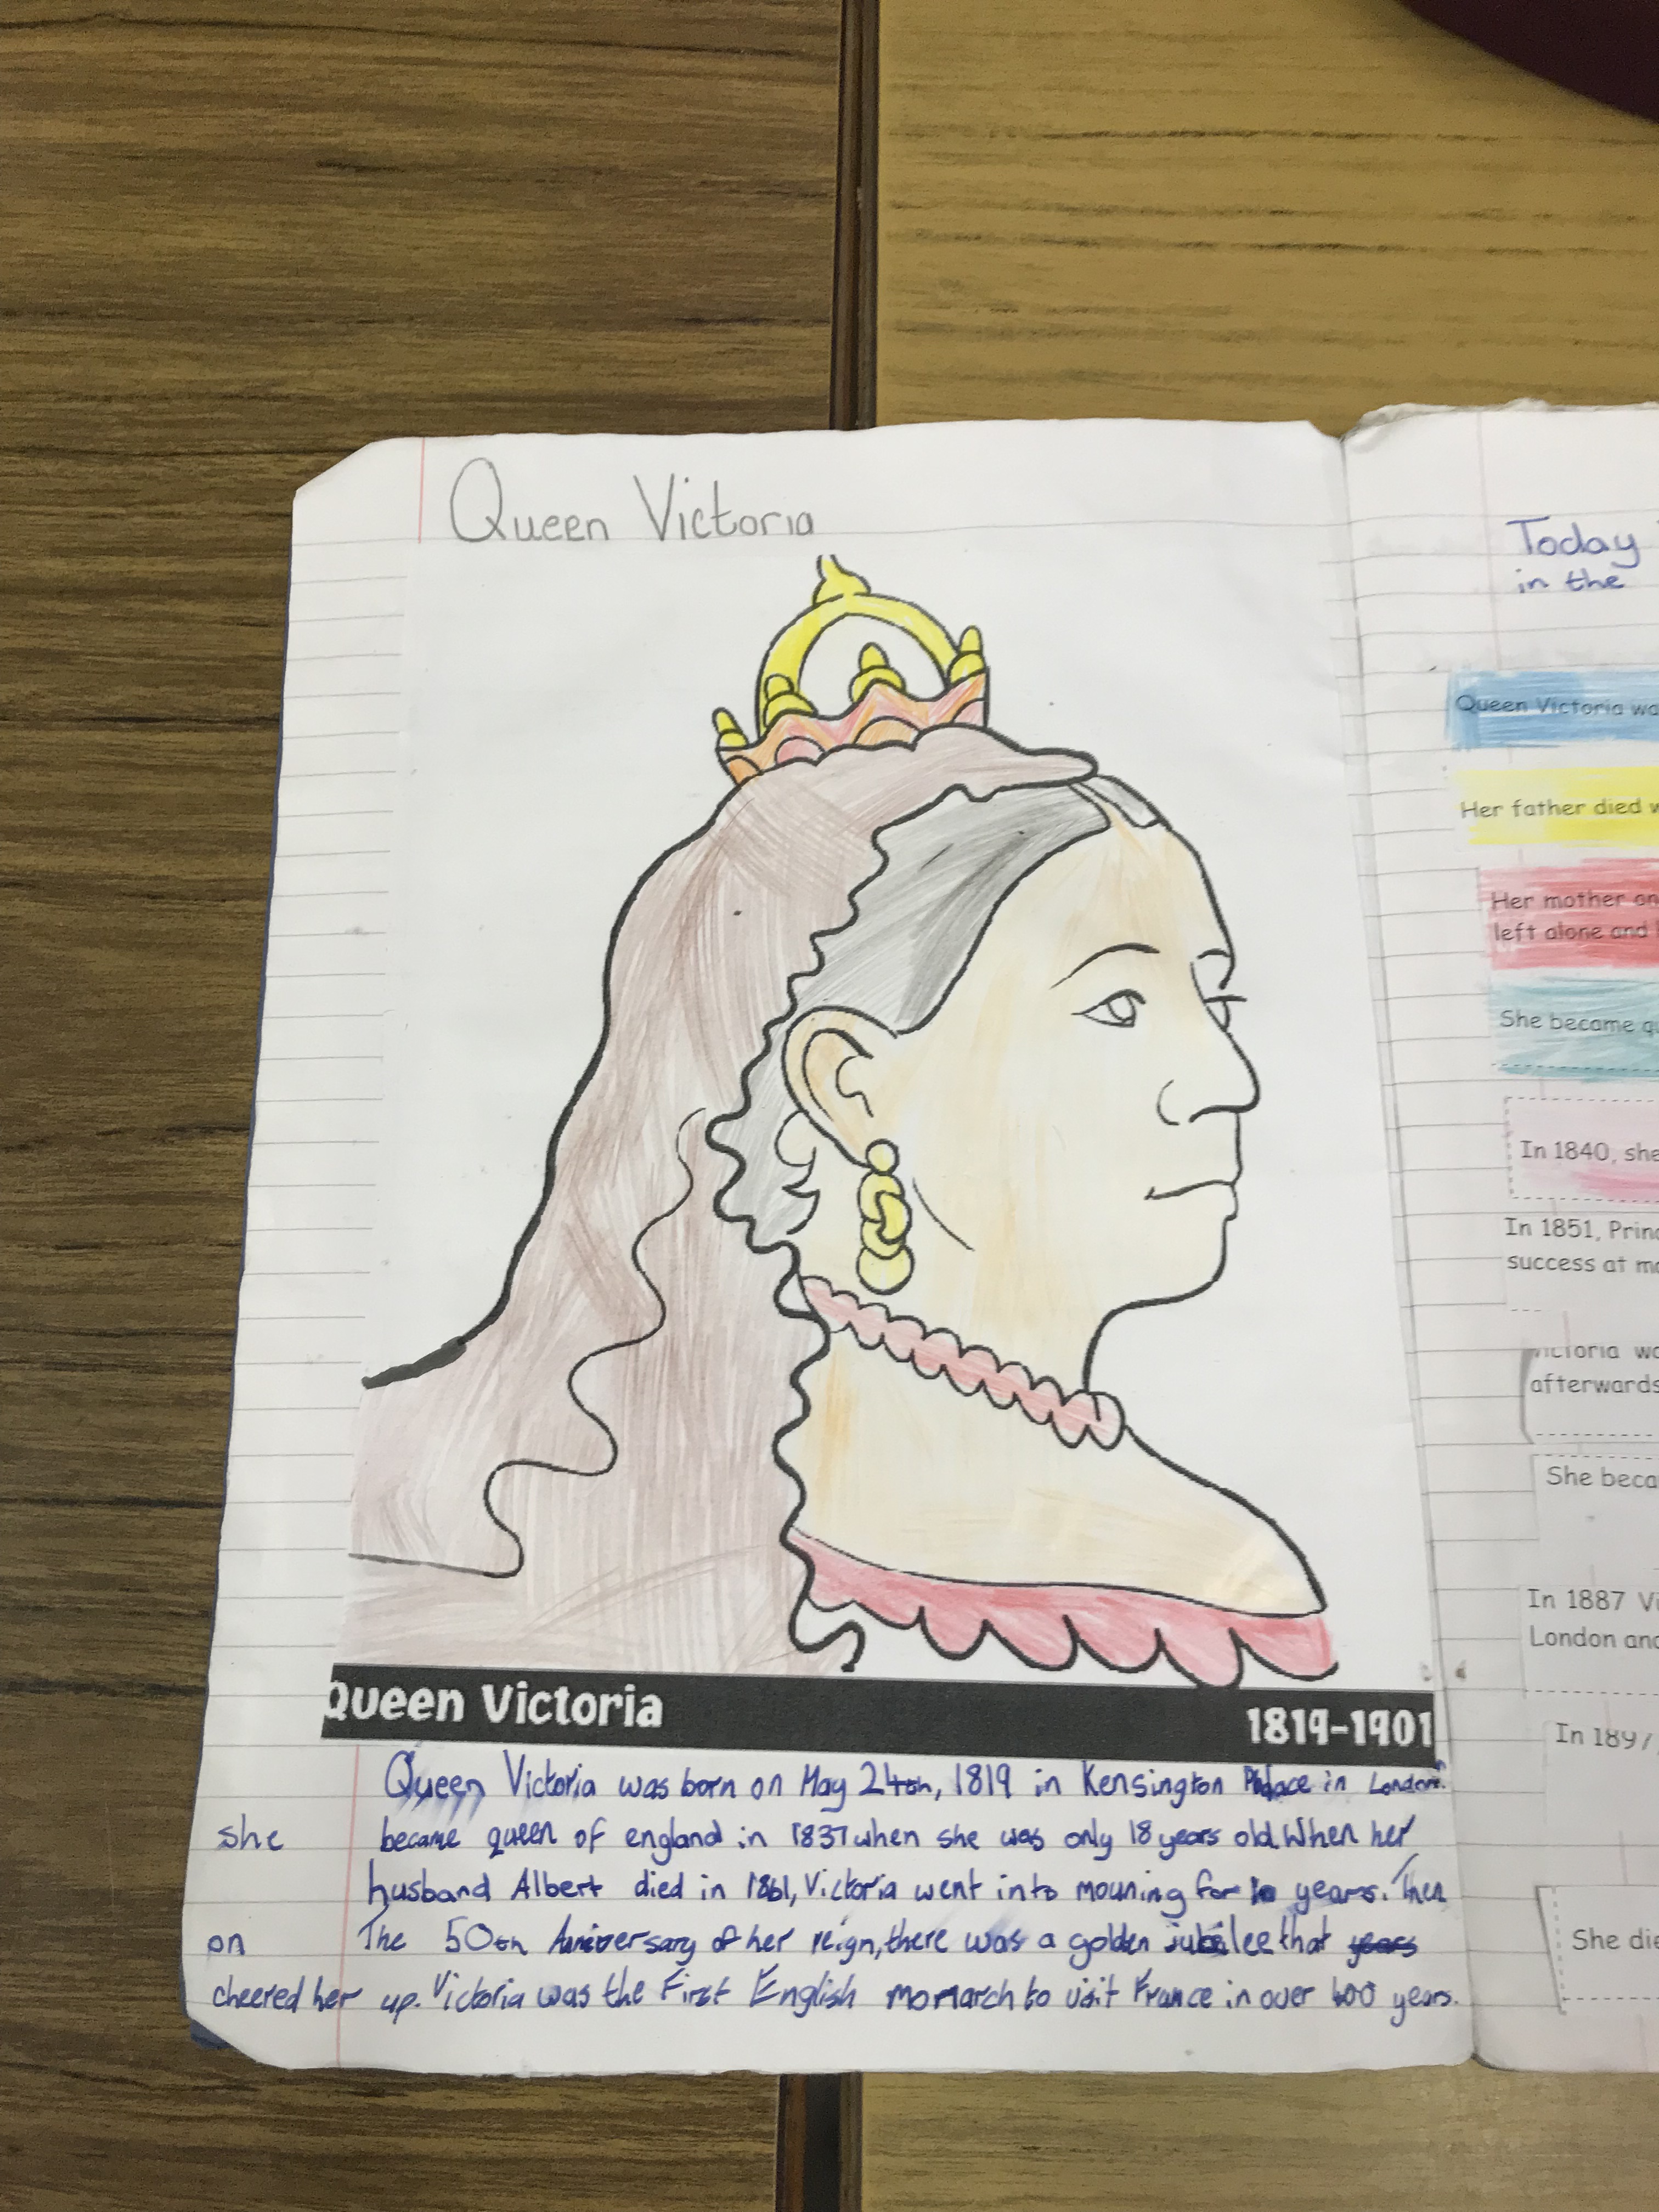 Queen Victoria
Queen Victoria 1819-1901
Queen Victoria was born on May 24th, 1819 in Kensington Palace in London.
she became queen of england in 1837 when she was only 18 years old. When her
husband Albert died in 1861, Victoria went into mouning for 10 years. Then
on The 50th Aniversary of her reign, there was a golden jubilee that years
cheered her up. Victoria was the First English monarch to visit France in over 400 years.
Today
in the
Queen Victoria wa
Her father died w
Her mother an
left alone and
She became qu
In 1840, she
In 1851, Princ
success at mo
Victoria wa
afterwards
She beca
In 1887 Vi
London and
In 1897
She die